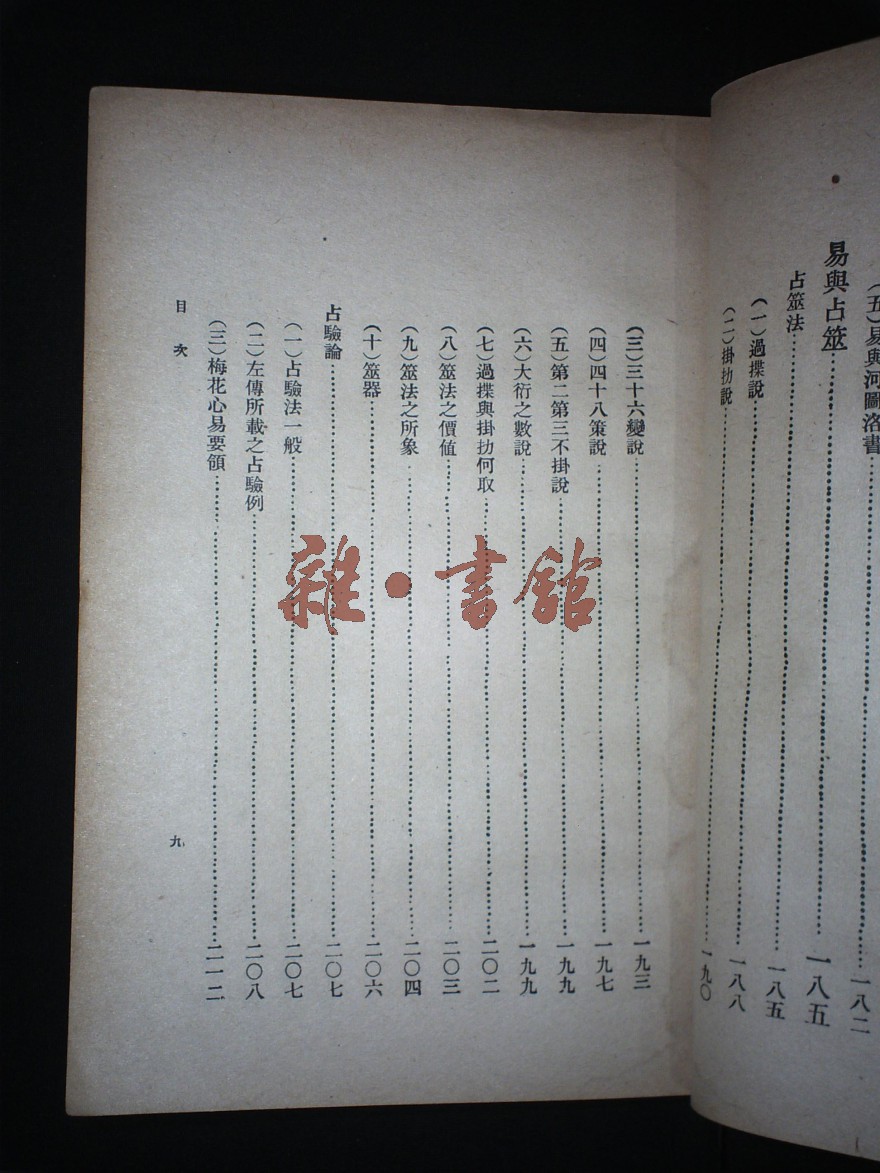 （五）易與河圖洛書……一八二
易與占筮……一八五
占筮法……一八五
（一）過揲說……一八八
（二）掛扐說……一九〇
（三）三十六變說……一九三
（四）四十八策說……一九七
（五）第二第三不掛說……一九九
（六）大衍之數說……一九九
（七）過揲與掛扐何取……二〇二
（八）筮法之價值……二〇三
（九）筮法之所象……二〇四
（十）筮器……二〇六
占驗論……二〇七
（一）占驗法一般……二〇七
（二）左傳所載之占驗例……二〇八
（三）梅花心易要領……二一二
目次
九
雜·書館